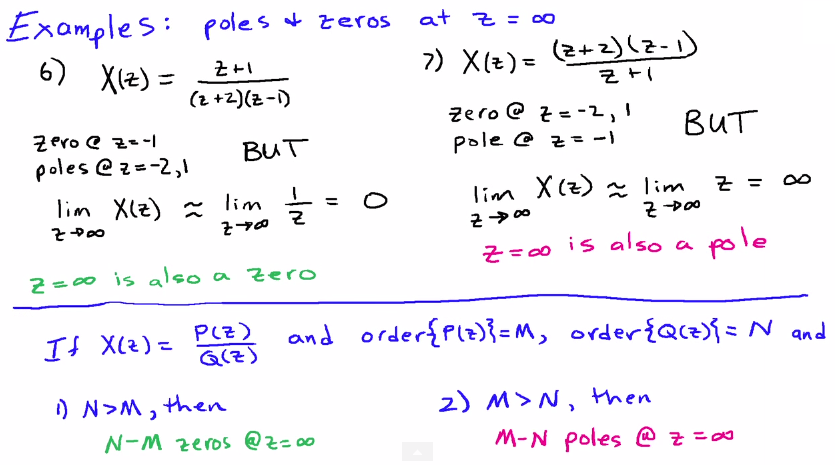 Examples: poles & zeros at z = ∞
6) X(z) = z+1 / (z+2)(z-1)
zero @ z=-1
poles @ z=-2,1
BUT
lim z→∞ X(z) ≈ lim z→∞ 1/z = 0
z=∞ is also a zero
7) X(z) = (z+2)(z-1) / z+1
zero @ z=-2, 1
pole @ z=-1
BUT
lim z→∞ X(z) ≈ lim z→∞ z = ∞
z=∞ is also a pole
If X(z) = P(z)/Q(z) and order{P(z)}=M, order{Q(z)}=N and
1) N>M, then
N-M zeros @ z=∞
2) M>N, then
M-N poles @ z=∞